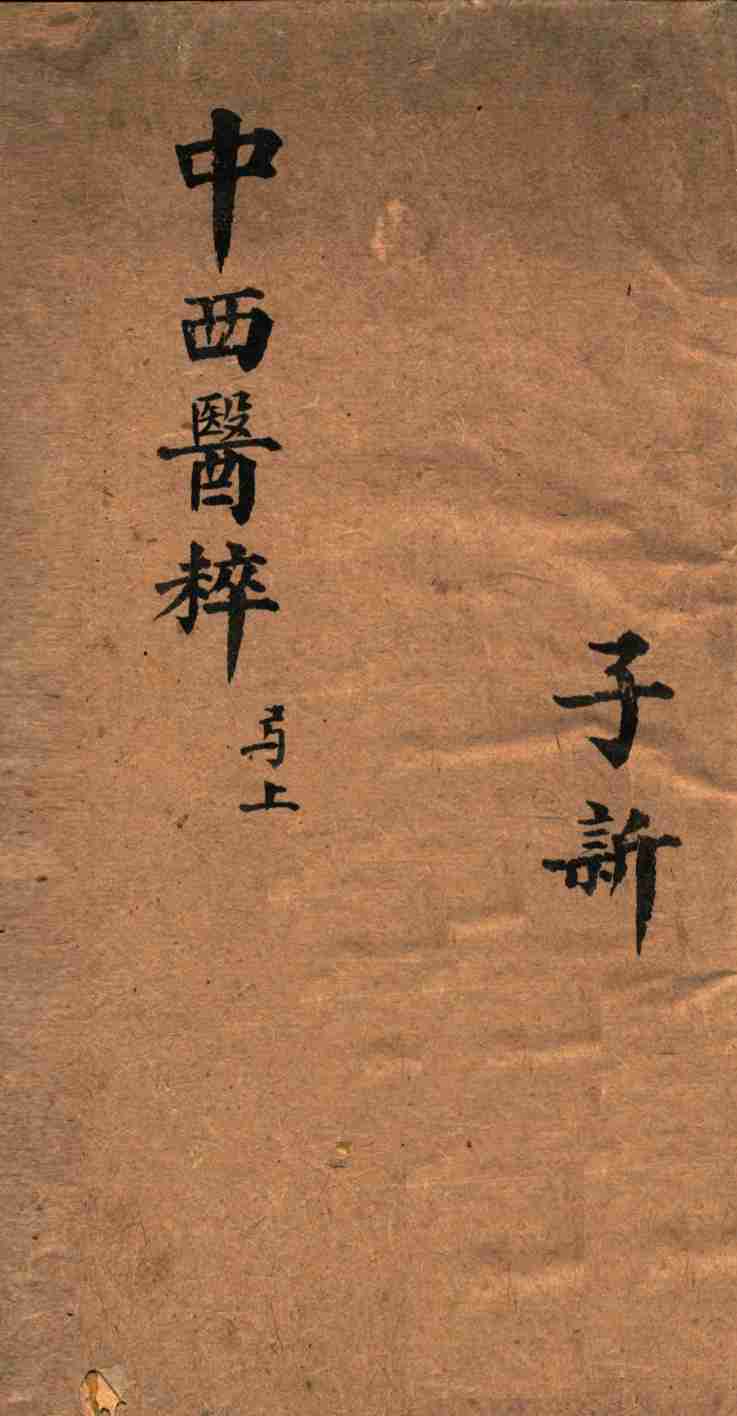 子訢
中西醫粹
弓上